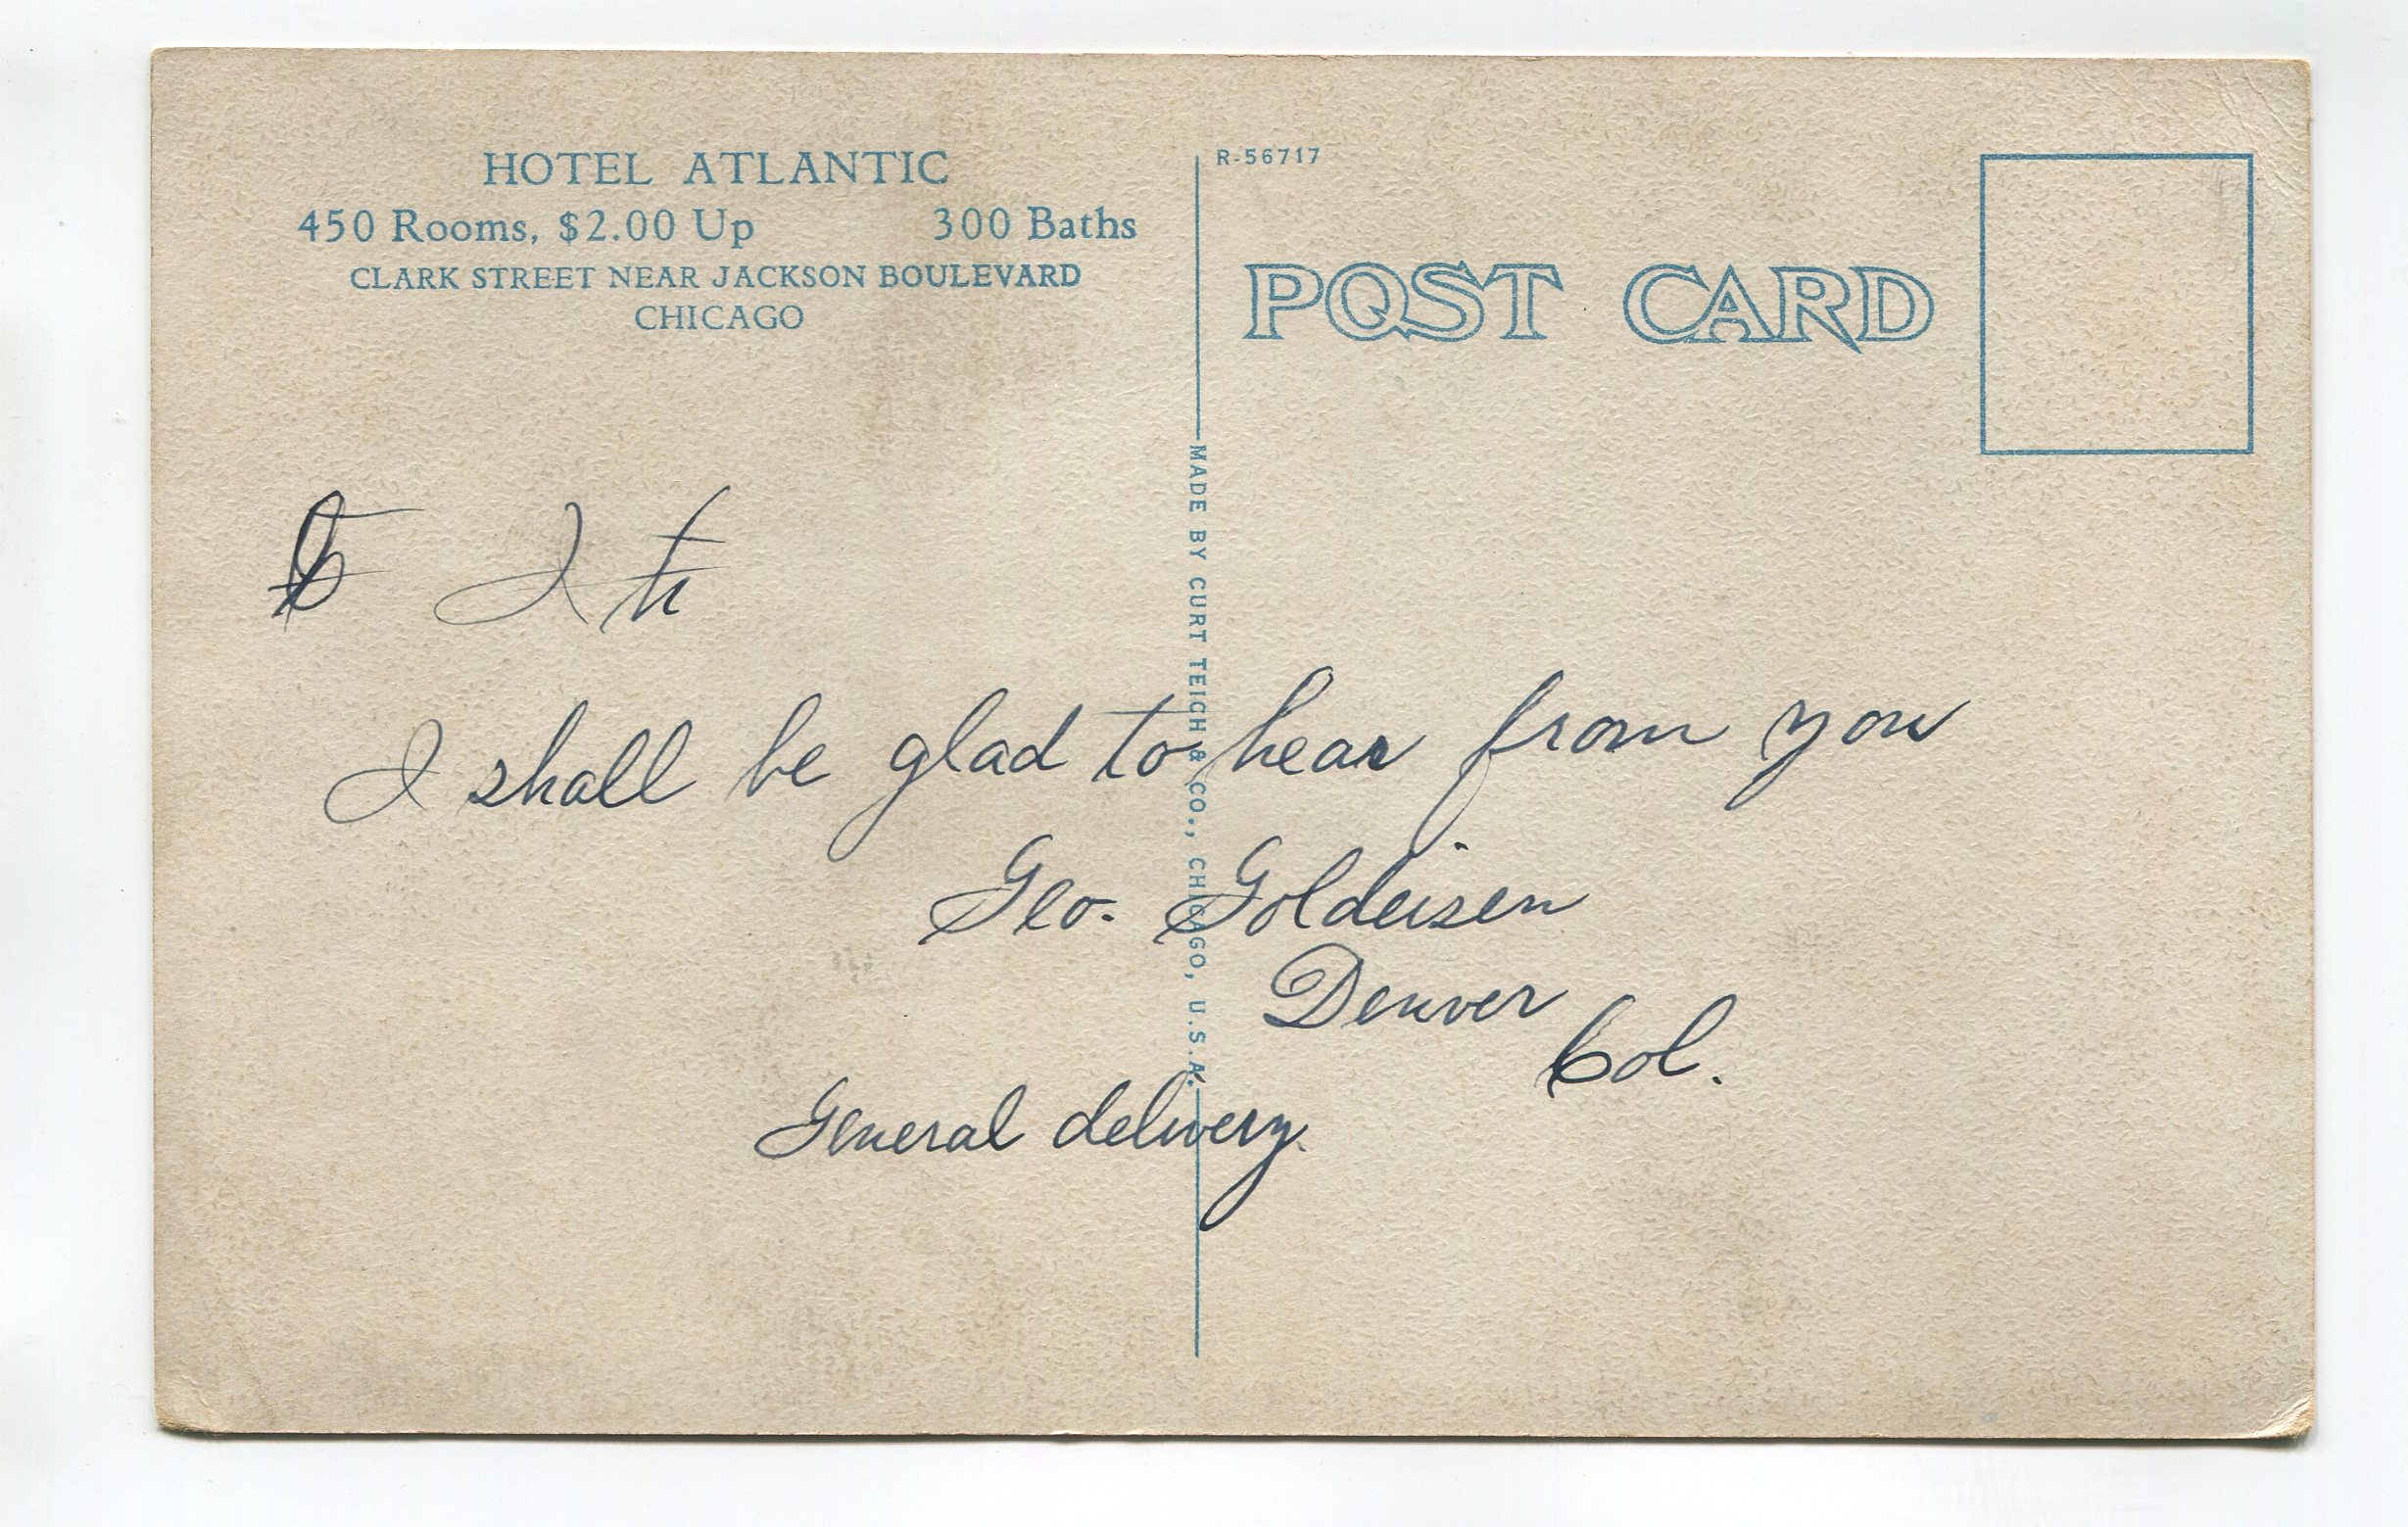 HOTEL ATLANTIC
450 Rooms, $2.00 Up 300 Baths
CLARK STREET NEAR JACKSON BOULEVARD
CHICAGO
R-56717
POST CARD
MADE BY CURT TEICH & CO., CHICAGO, U.S.A.
I
I shall be glad to hear from you
Geo. Goldeisen
Denver
Col.
General delivery.